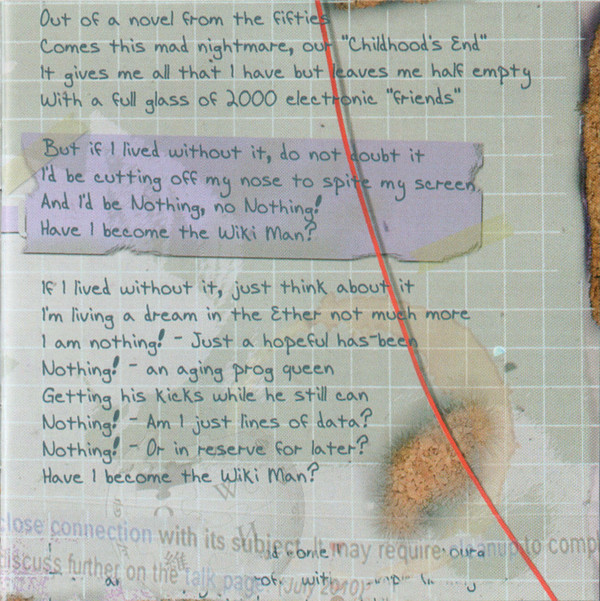 Out of a novel from the fifties
Comes this mad nightmare, our "Childhood's End"
It gives me all that I have but leaves me half empty
With a full glass of 2000 electronic "friends"
But if I lived without it, do not doubt it
I'd be cutting off my nose to spite my screen
And I'd be Nothing, no Nothing!
Have I become the Wiki Man?
If I lived without it, just think about it
I'm living a dream in the Ether not much more
I am nothing! - Just a hopeful has-been
Nothing! - an aging prog queen
Getting his kicks while he still can
Nothing! - Am I just lines of data?
Nothing! - Or in reserve for later?
Have I become the Wiki Man?
close connection with its subject. It may require cleanup to comp
discuss further on the talk page. (July 2010)